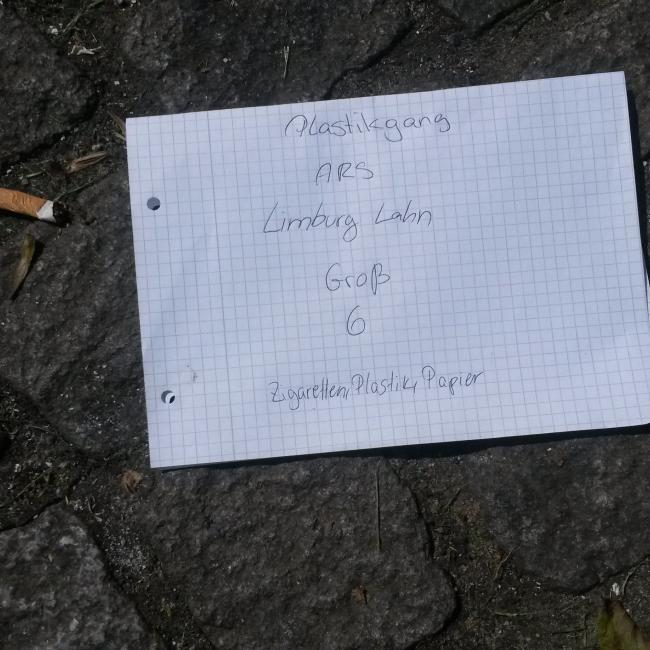 Plastikgang
ARS
Limburg Lahn
Groß
6
Zigaretten, Plastik, Papier